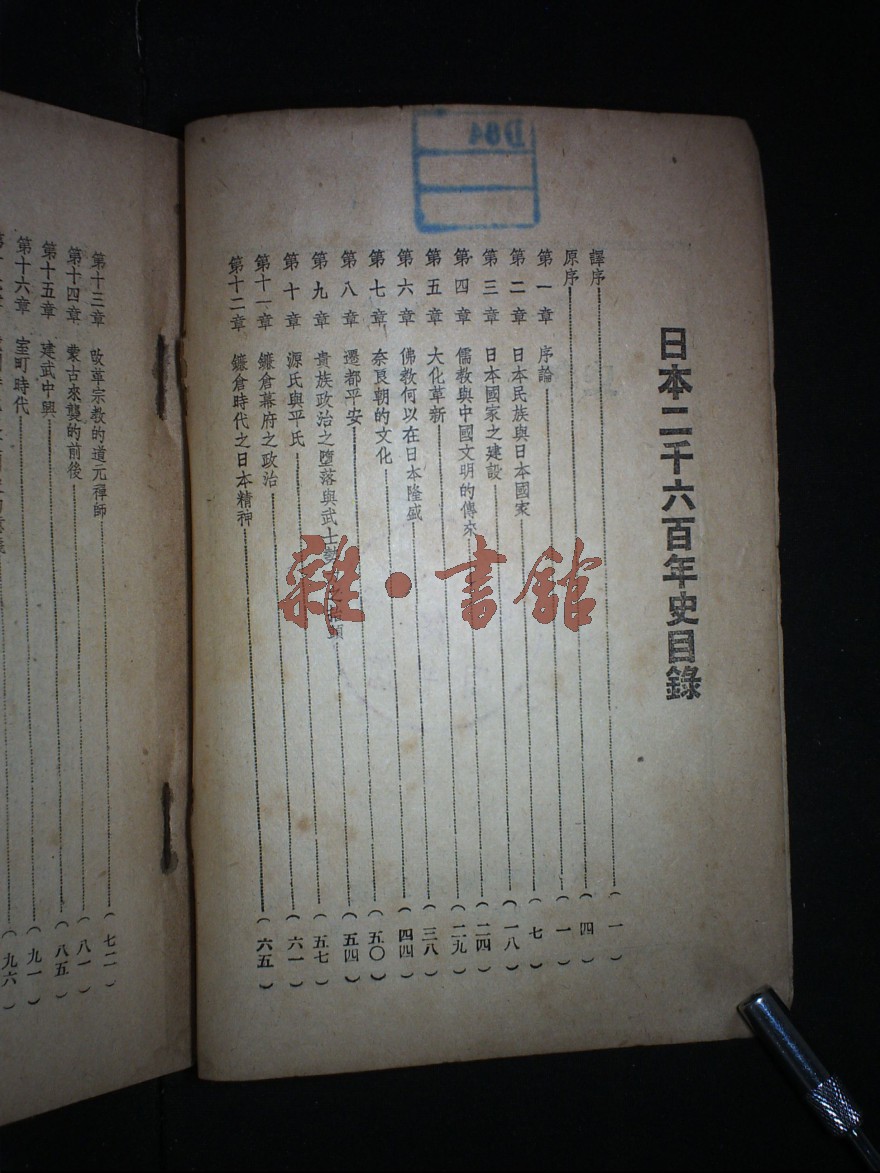 日本二千六百年史目錄
譯序………(一)
原序………(四)
第一章 序論………(一)
第二章 日本民族與日本國家………(七)
第三章 日本國家之建設………(一八)
第四章 儒教與中國文明的傳來………(二四)
第五章 大化革新………(二九)
第六章 佛教何以在日本隆盛………(三八)
第七章 奈良朝的文化………(四四)
第八章 遷都平安………(五〇)
第九章 貴族政治之墮落與武士之抬頭………(五四)
第十章 源氏與平氏………(五七)
第十一章 鎌倉幕府之政治………(六一)
第十二章 鎌倉時代之日本精神………(六五)
第十三章 改革宗教的道元禪師………(七二)
第十四章 蒙古來襲的前後………(八一)
第十五章 建武中興………(八五)
第十六章 室町時代………(九一)
(九六)
D64
雜·書館